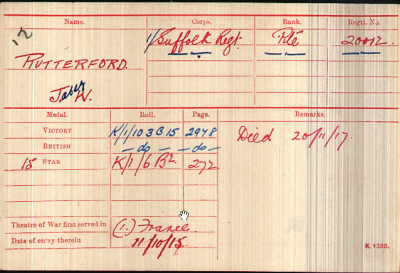 Name. Corps. Rank. Regtl. No.
12
1/Suffolk Regt. Pte 20012.
RUTTERFORD
W.
Medal. Roll. Page. Remarks.
VICTORY K/1/103B15 2948 Died 20/11/17.
BRITISH —do— —do—
15 STAR K/1/6B2 272
Theatre of War first served in (1.) France.
Date of entry therein 11/10/15.
K. 1380.